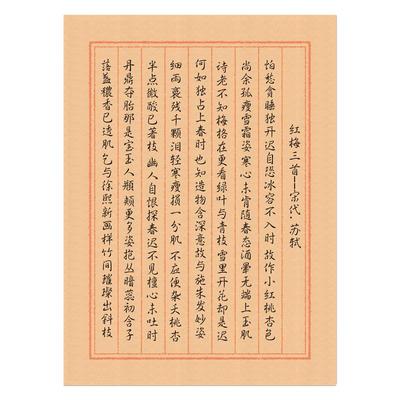 红梅三首--宋代·苏轼
怕愁贪睡独开迟自恐冰容不入时故作小红桃杏色
尚余孤瘦雪霜姿寒心未肯随春态酒晕无端上玉肌
诗老不知梅格在更看绿叶与青枝雪里开花却是迟
何如独占上春时也知造物含深意故与施朱发妙姿
细雨裛残千颗泪轻寒瘦损一分肌不应便杂夭桃杏
半点微酸已著枝幽人自恨探春迟不见檀心未吐时
丹鼎夺胎那是宝玉人頩颊更多姿抱丛暗蕊初含子
落盏穠香已透肌乞与徐熙新画样竹间璀璨出斜枝